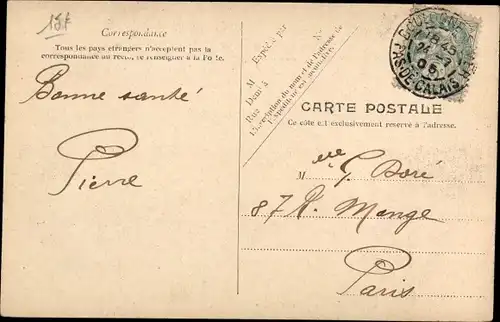 15f
Correspondance
Tous les pays étrangers n'acceptent pas la
correspondance au recto, se renseigner à la Poste.
Bonne santé
Pierre
M Expédié par
Demt à
Rue N°
L'inscription du nom et de l'adresse de
l'Expéditeur est facultative.
PAS-DE-CALAIS
CARTE POSTALE
Ce côté est exclusivement réservé à l'adresse.
Mlle G. Doré
87 R. Monge
Paris